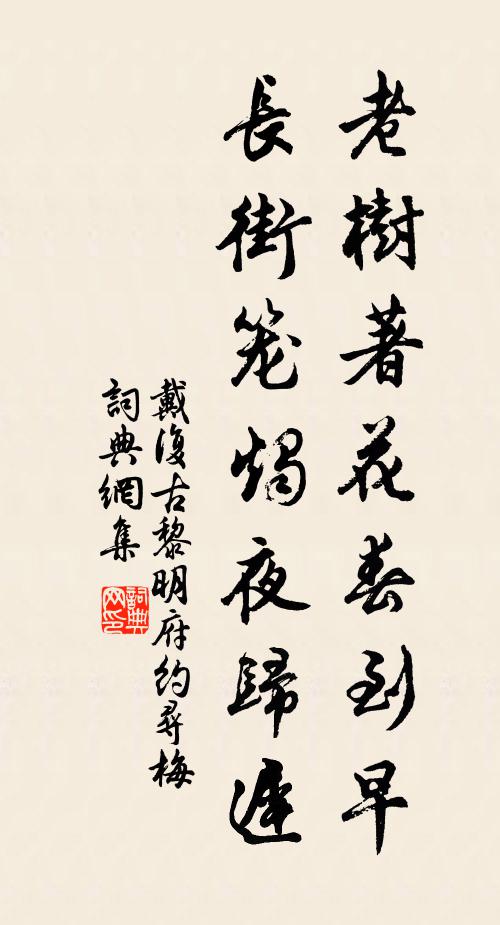 老樹著花春到早
長街笼燭夜歸遲
戴復古黎明府約尋梅
詞典網集
詞典网印